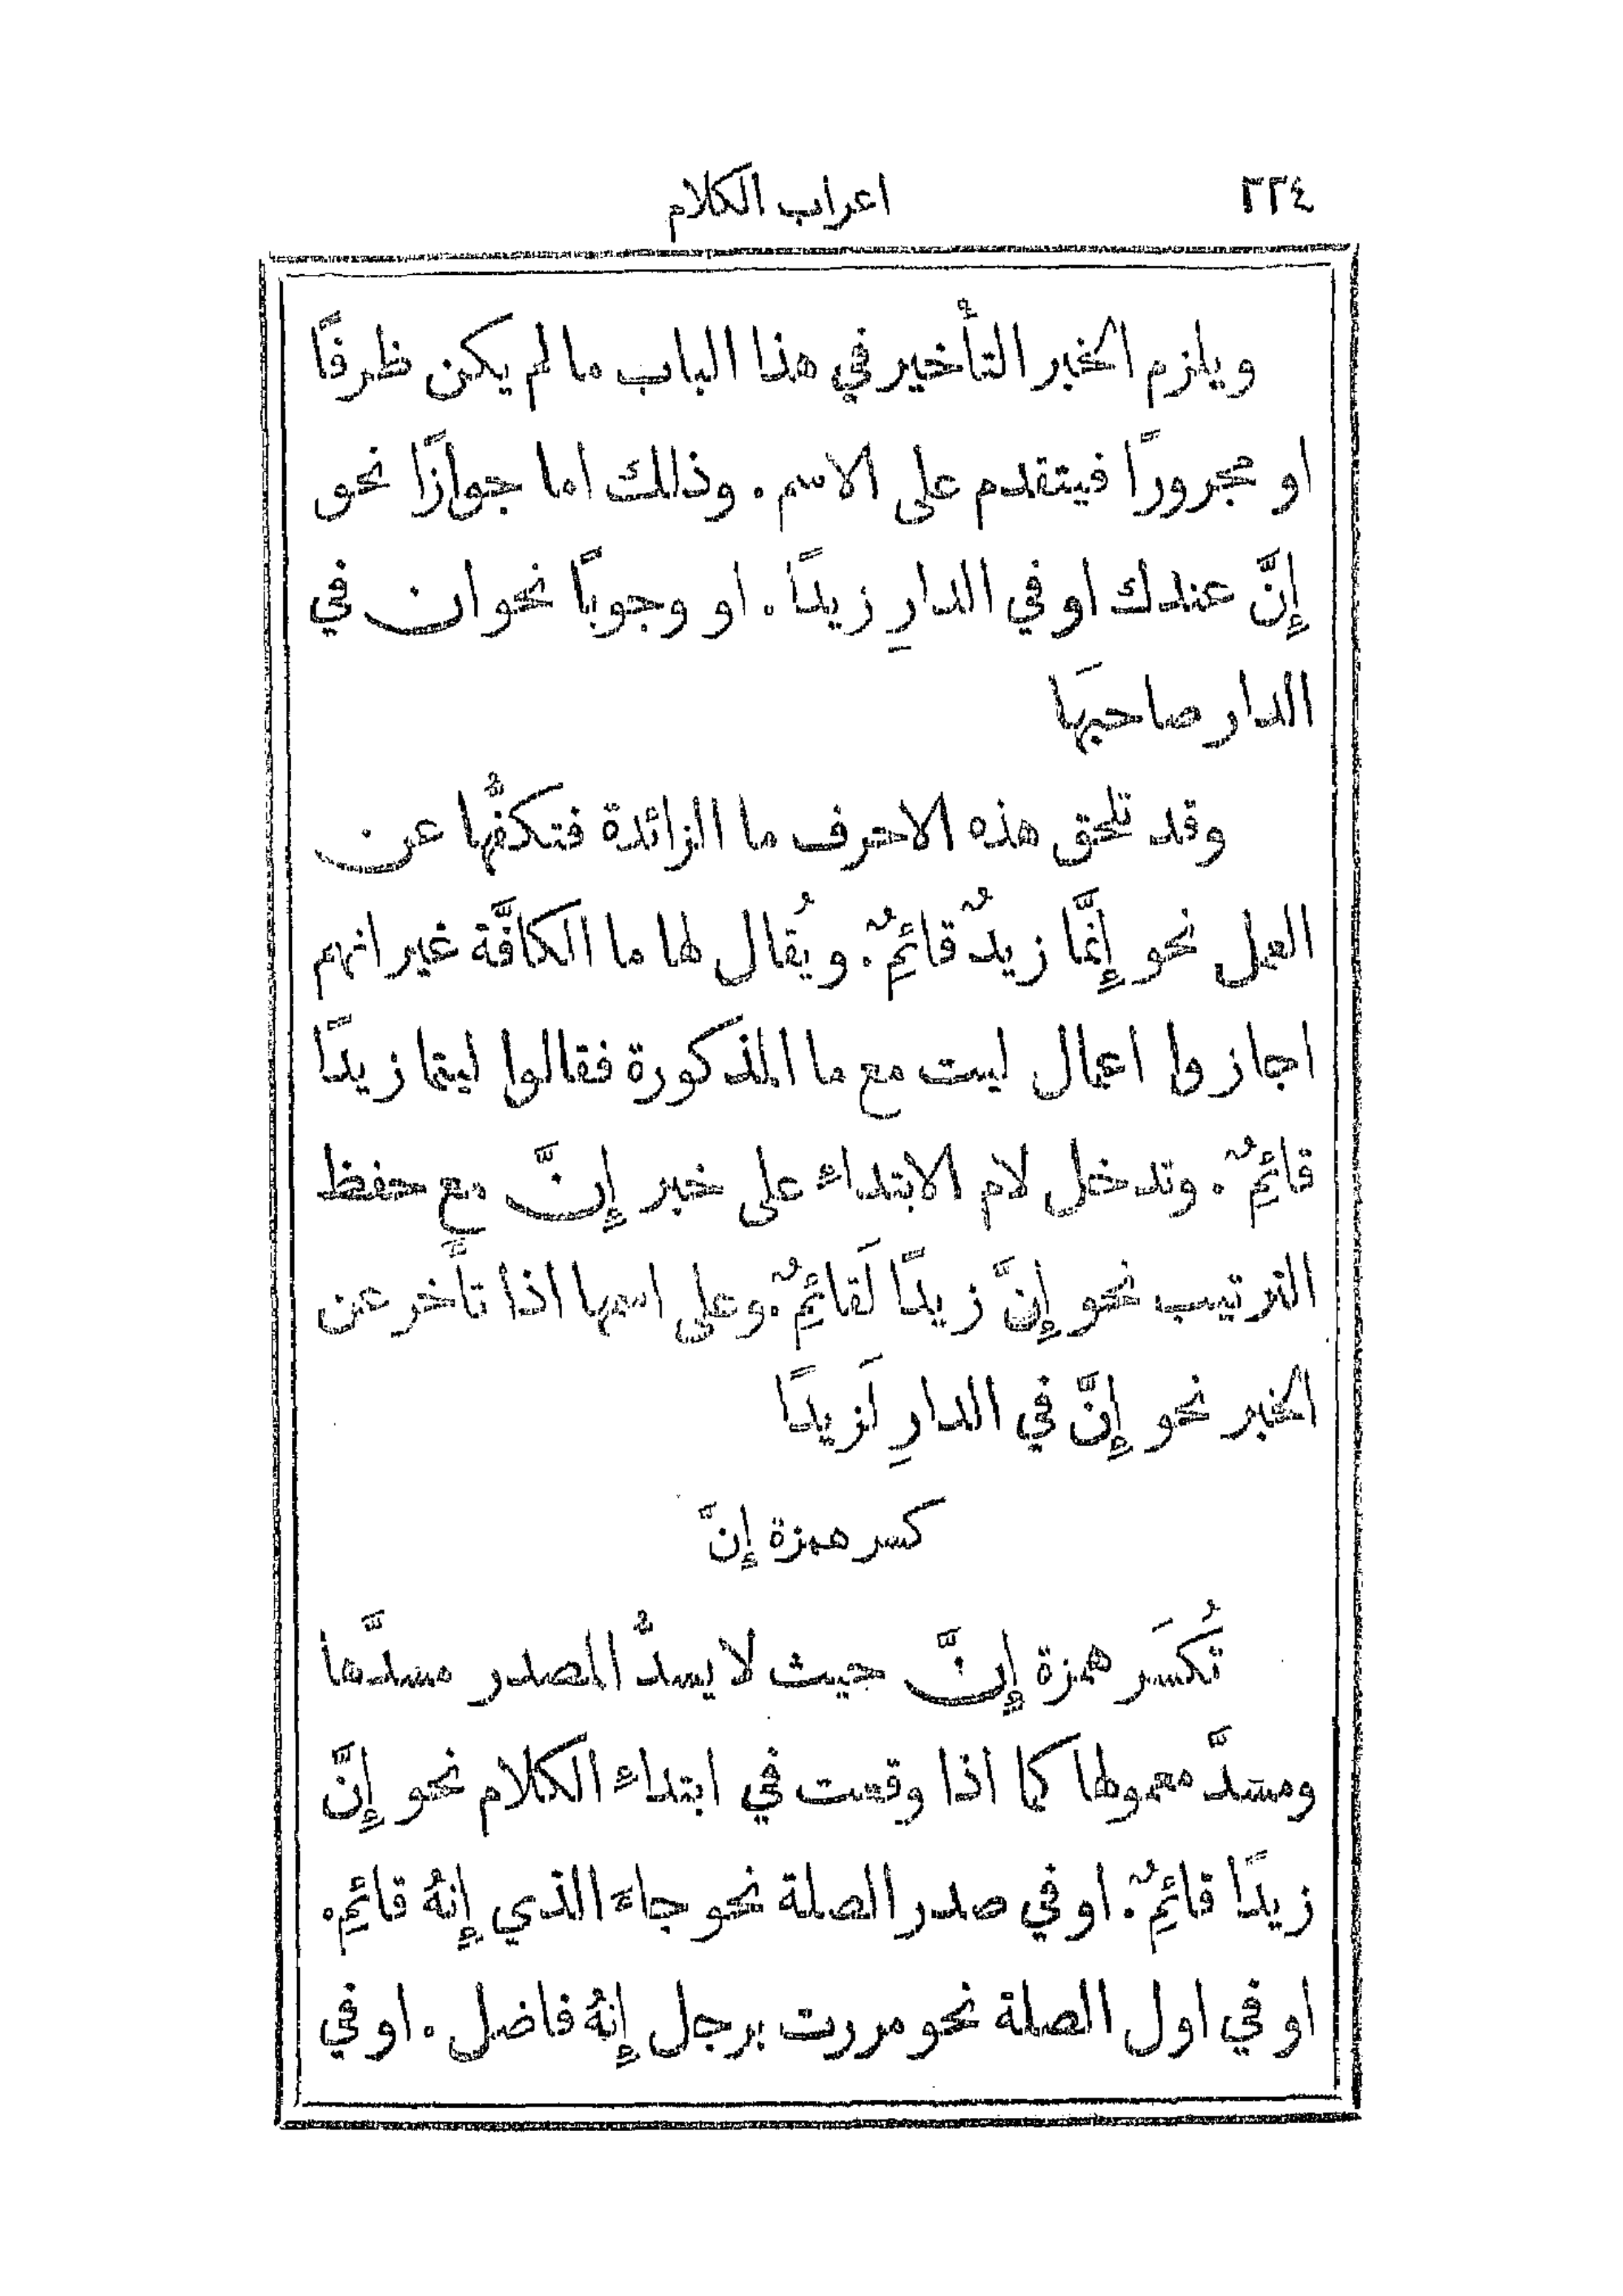 ٢٢٤ اعراب الكلام
ويلزم الخبر التأخير في هذا الباب ما لم يكن ظرفًا
او مجرورًا فيتقدم على الاسم. وذلك اما جوازًا نحو
إِنَّ عندك او في الدارِ زيدًا. او وجوبًا نحو ان في
الدار صاحبَها
وقد تلحق هذه الاحرف ما الزائدة فتكفُّها عن
العمل نحو إِنَّما زيدٌ قائِمٌ. ويُقال لها ما الكافَّة غير انهم
اجازوا اعمال ليت مع ما المذكورة فقالوا ليتما زيدًا
قائِمٌ. وتدخل لام الابتداء على خبر إِنَّ مع حفظ
الترتيب نحو إِنَّ زيدًا لَقائِمٌ. وعلى اسمها اذا تأَخَّر عن
الخبر نحو إِنَّ في الدارِ لَزيدًا
كسر همزة إِنَّ
تُكسَر همزة إِنَّ حيث لا يسدُّ المصدر مسدَّها
ومسدَّ معمولها كما اذا وقعت في ابتداء الكلام نحو إِنَّ
زيدًا قائِمٌ. او في صدر الصلة نحو جاءَ الذي إِنهُ قائِم.
او في اول الصلة نحو مررت برجل إِنهُ فاضل. او في